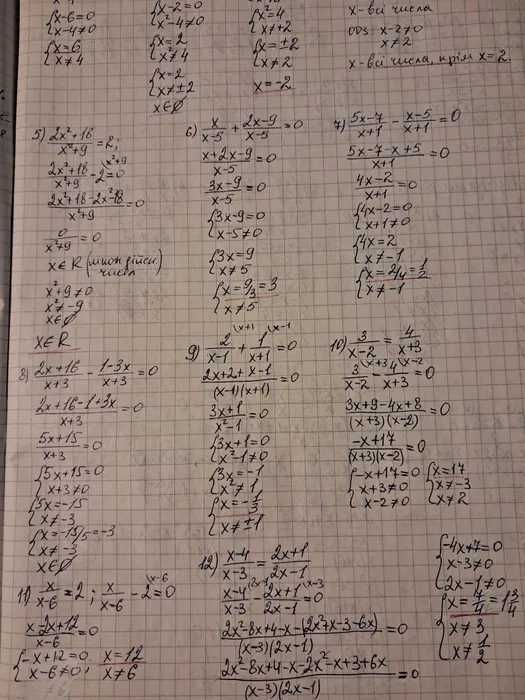 {x-6=0
x-4≠0
{x=6
x≠4
{x-2=0
x²-4≠0
{x=2
x²≠4
{x=2
x≠±2
x∈∅
{x²=4
x≠+2
{x=±2
x≠2
x=-2
x-всі числа
ОДЗ: x-2≠0
x≠2
x-всі числа, крім x=2.
5) (2x²+18)/(x²+9)=2;
(2x²+18)/(x²+9)-2=0 \x²+9
(2x²+18-2x²-18)/(x²+9)=0
0/(x²+9)=0
x∈R (множ. дійсн.
числа)
x²+9≠0
x²≠-9
x∈∅
x∈R
6) x/(x-5)+(2x-9)/(x-5)=0
(x+2x-9)/(x-5)=0
(3x-9)/(x-5)=0
{3x-9=0
x-5≠0
{3x=9
x≠5
{x=9/3=3
x≠5
7) (5x-7)/(x+1)-(x-5)/(x+1)=0
(5x-7-x+5)/(x+1)=0
(4x-2)/(x+1)=0
{4x-2=0
x+1≠0
{4x=2
x≠-1
{x=2/4=1/2
x≠-1
8) (2x+16)/(x+3)-(1-3x)/(x+3)=0
(2x+16-1+3x)/(x+3)=0
(5x+15)/(x+3)=0
{5x+15=0
x+3≠0
{5x=-15
x≠-3
{x=-15/5=-3
x≠-3
x∈∅
9) 2/(x-1) \x+1 + 1/(x+1) \x-1 =0
(2x+2+x-1)/((x-1)(x+1))=0
(3x+1)/(x²-1)=0
{3x+1=0
x²-1≠0
{3x=-1
x²≠1
{x=-1/3
x≠±1
10) 3/(x-2)=4/(x+3)
3/(x-2) \x+3 - 4/(x+3) \x-2 =0
(3x+9-4x+8)/((x+3)(x-2))=0
(-x+17)/((x+3)(x-2))=0
{-x+17=0
x+3≠0
x-2≠0
{x=17
x≠-3
x≠2
11) x/(x-6)=2; x/(x-6)-2=0 \x-6
(x-2x+12)/(x-6)=0
{-x+12=0
x-6≠0;
{x=12
x≠6
12) (x-4)/(x-3)=(2x+1)/(2x-1)
(x-4)/(x-3) \2x-1 - (2x+1)/(2x-1) \x-3 =0
(2x²-8x+4-x-(2x²+x-3-6x))/((x-3)(2x-1))=0
(2x²-8x+4-x-2x²-x+3+6x)/((x-3)(2x-1))=0
{-4x+7=0
x-3≠0
2x-1≠0
{x=7/4=1 3/4
x≠3,
x≠1/2